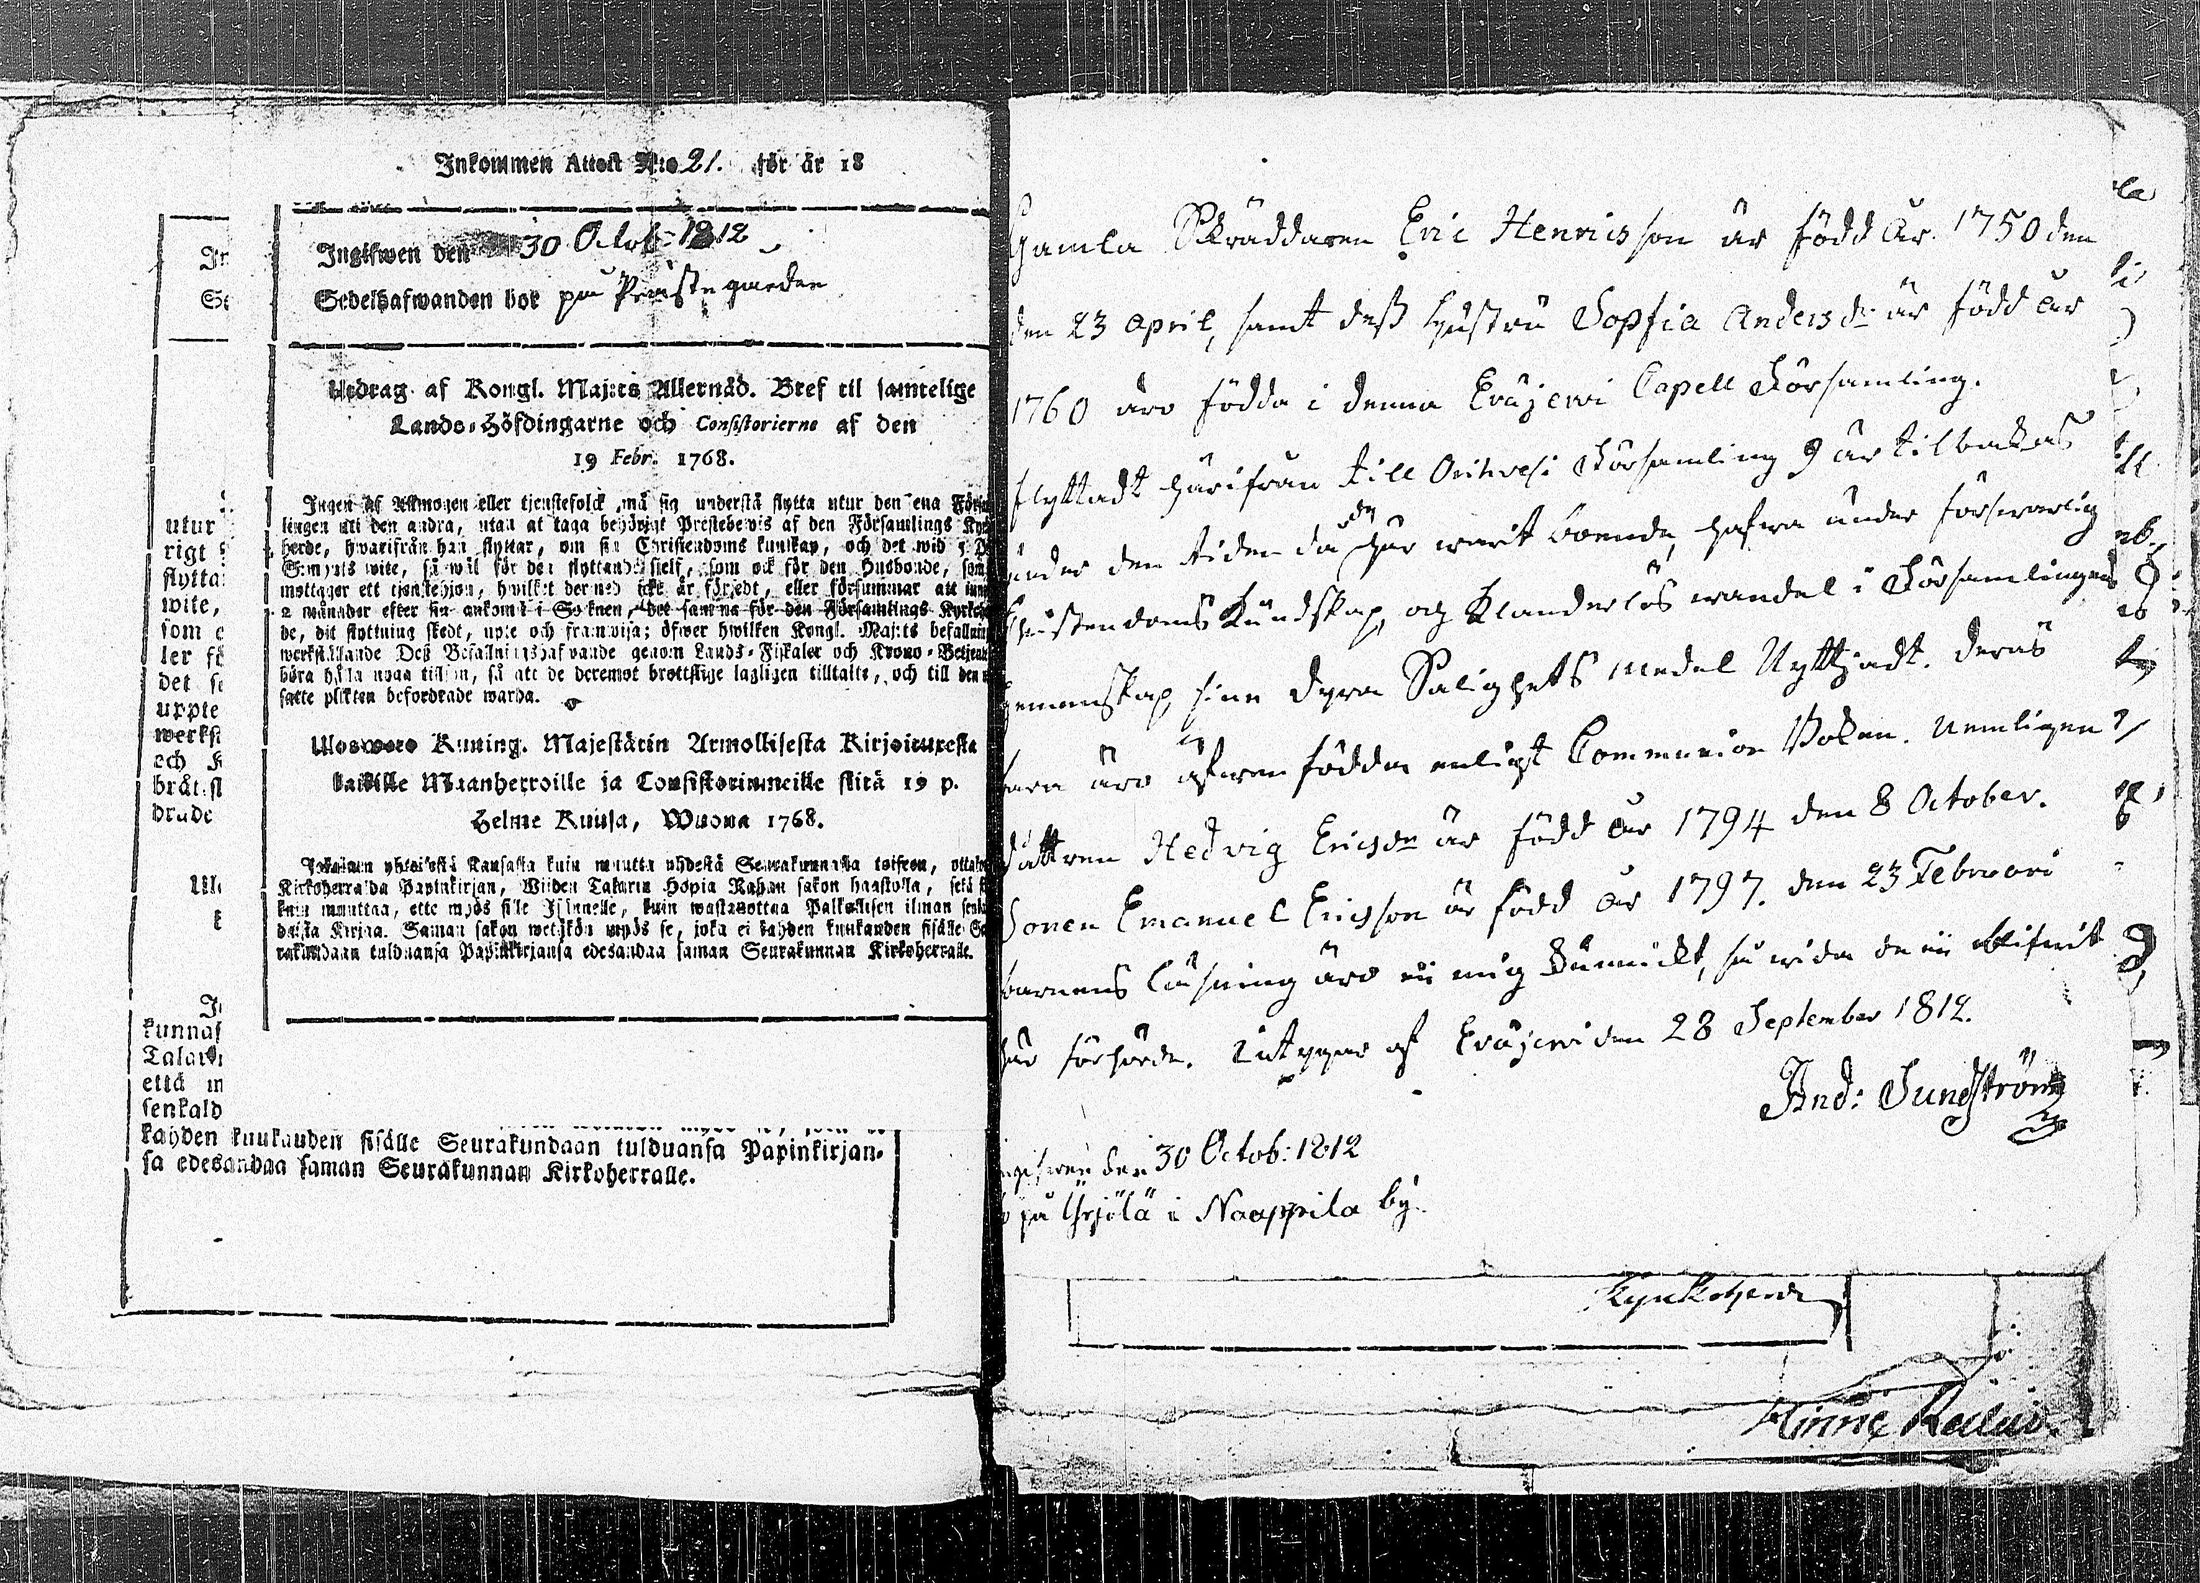 Inkommen Attest N:o 21. för år 18
Ingifwen den 30 Octob: 1812
Sedelhafwanden bor på Prästegården
Utdrag af Kongl. Maj:ts Allernåd. Bref til samtelige
Lands-Höfdingarne och Consistorierne af den
19 Febr. 1768.
Ingen af Allmogen eller tjenstefolck må sig understå flytta utur den ena Församl
lingen till den andra, utan at taga behörigt Prestebewis af den Församlings Kyrko
herde, hwarifrån han flyttar, om sin Christendoms kunskap, och det wid 5 D
S:mynts wite, så wäl för den flyttande sielf, som ock för den Husbonde, som
mottager ett tjenstehjon, hwilket dermed icke är försedt, eller försummar att inom
2 månader efter sin ankomst i Socknen, det samma för den Församlings Kyrkoher
de, dit flyttning skedt, upte och framwisa; öfwer hwilken Kongl. Maj:ts befallning
werkställande Deß Befallningshafwande genom Lands-Fiskaler och Krono-Betjente
böra hålla noga tillsyn, så att de deremot brottslige lagligen tilltalte, och till den ut
satte plikten befordrade warda.
Ulosweto Kuning. Majestätin Armollisesta Kirjoituxesta
kaikille Maanherroille ja Consistoriumeille siitä 19 p.
Helme Kuusa, Wuona 1768.
Jokainen yhteisestä Kansasta kuin muutta yhdestä Seurakunnasta toiseen, ottakoon
Kirkoherralda Papinkirjan, Wiiden Talarin Hopia Rahan sakon haastolla, sekä se
kuin muuttaa, ette myös sille Isännelle, kuin wastanottaa Palkollisen ilman senkal
daista Kirjaa. Saman sakon wetäkön myös se, joka ei kahden kuukauden sisälle Seu
rakundaan tulduansa Papinkirjansa edesandaa saman Seurakunnan Kirkoherralle.
utur
rigt
flytta
wite,
som
ler fö
det
uppte
werkst
och K
bråt
drade
kunnas
Talar
että m
senkald
kahden kuukauden sisälle Seurakundaan tulduansa Papinkirjan-
sa edesandaa saman Seurakunnan Kirkoherralle.
Gamla Skräddaren Eric Henricsson är född år 1750 den
den 23 April, samt deß Hustru Sophia Andersdr är född år
1760 äro födda i denna Eräjerwi Capell Församling.
flyttadt härifrån till Orihvesi Församling 9 år tilbakas
under den tiden då de här warit boende, hafwa under förswarlig
Christendoms Kundskap, och Klanderlös wandel i Församlingens
gemenskap, sine dyra Salighets medel Nyttjadt. deras
barn äro äfwen födda enligt Communion Boken. Nemligen
dåttren Hedvig Ericsdr är född år 1794 den 8 October.
Sonen Emanuel Ericsson är född år 1797. den 23 Februari
barnens läsning äro ei mig kunnickt, så wida de ei blifwit
här förhörde. Betygar af Eräjerwi den 28 September 1812.
And: Sundström
ingifwen den 30 Octob: 1812
på Yrjölä i Naappila by.
Kyrkoherde